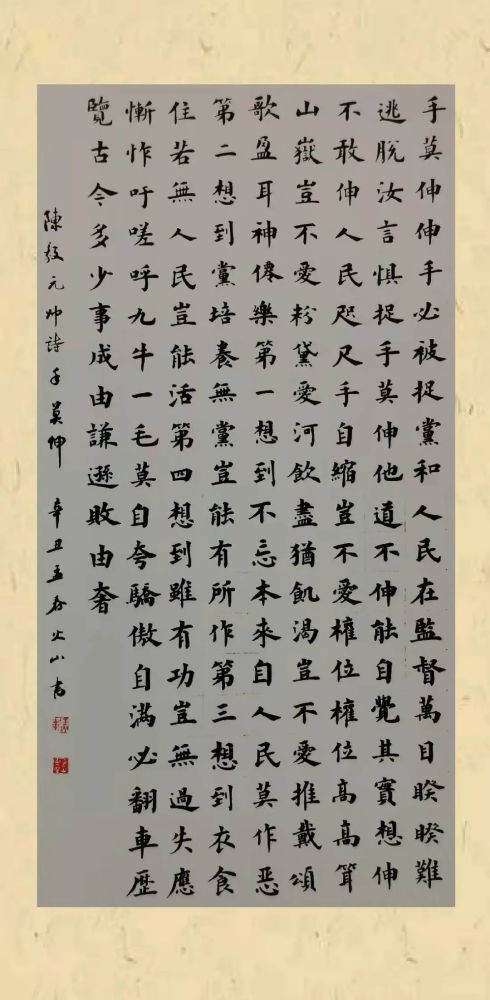 手莫伸伸手必被捉黨和人民在監督萬目睽睽難
逃脫汝言懼捉手莫伸他道不伸能自覺其實想伸
不敢伸人民咫尺手自縮豈不愛權位權位高高聳
山嶽豈不愛粉黛愛河飲盡猶飢渴豈不愛推戴頌
歌盈耳神僊樂第一想到不忘本來自人民莫作惡
第二想到黨培養無黨豈能有所作第三想到衣食
住若無人民豈能活第四想到雖有功豈無過失應
慚怍吁嗟呼九牛一毛莫自夸驕傲自滿必翻車歷
覽古今多少事成由謙遜敗由奢
陳毅元帅詩手莫伸 辛丑孟春火山書